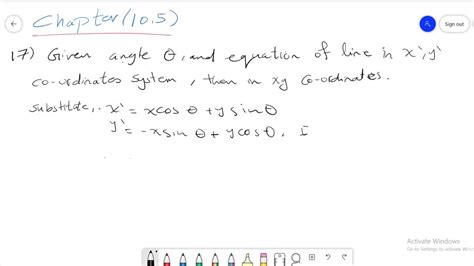 Chapter(10.5)
Sign out
17) Given angle θ, and equation of line in x', y'
co-ordinates system, then in xy co-ordinates.
Substitute, . x' = xcos θ + y sinθ
y' = -xsin θ + ycosθ. I
Activate Windows
Go to Settings to activate Windows.